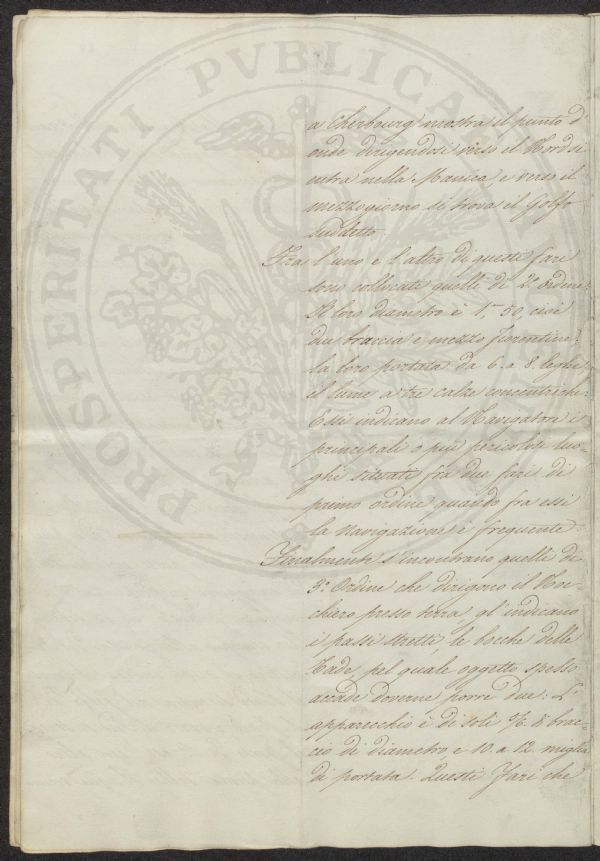 PROSPERITATI PVBLICAE
a Cherbourg mostra il punto d
onde dirigendosi verso il Nord si
entra nella Manica, e verso il
mezzogiorno si trova il Golfo
suddetto.
Fra l'uno e l'altro di questi fari
sono collocati quelli di 2.º ordine.
Il loro diametro è 1.m 50, cioè
due braccia e mezzo fiorentine:
la loro portata da 6. a 8. leghe:
il lume a tre calze concentriche.
Essi indicano al Navigatore i
principali o più pericolosi luo-
ghi situati fra due fari di
primo ordine quando fra essi
la navigazione è frequente.
Finalmente s'incontrano quelli di
3.º Ordine che dirigono il Noc-
chiero presso terra, gl'indicano
i passi stretti, le bocche delle
Rade, pel quale oggetto spesso
accade doverne porre due. L'
apparecchio è di soli di brac-
cio di diametro e 10. a 12. miglia
di portata. Questi Fari che